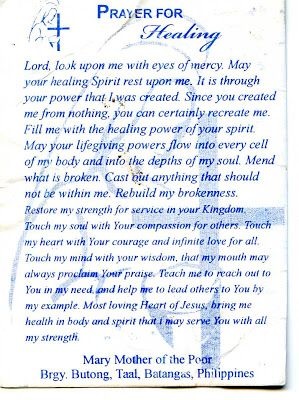 PRAYER FOR
Healing
Lord, look upon me with eyes of mercy. May
your healing Spirit rest upon me. It is through
your power that I was created. Since you created
me from nothing, you can certainly recreate me.
Fill me with the healing power of your spirit.
May your lifegiving powers flow into every cell
of my body and into the depths of my soul. Mend
what is broken. Cast out anything that should
not be within me. Rebuild my brokenness.
Restore my strength for service in your Kingdom.
Touch my soul with Your compassion for others. Touch
my heart with Your courage and infinite love for all.
Touch my mind with your wisdom, that my mouth may
always proclaim Your praise. Teach me to reach out to
You in my need, and help me to lead others to You by
my example. Most loving Heart of Jesus, bring me
health in body and spirit that i may serve You with all
my strength.
Mary Mother of the Poor
Brgy. Butong, Taal, Batangas, Philippines